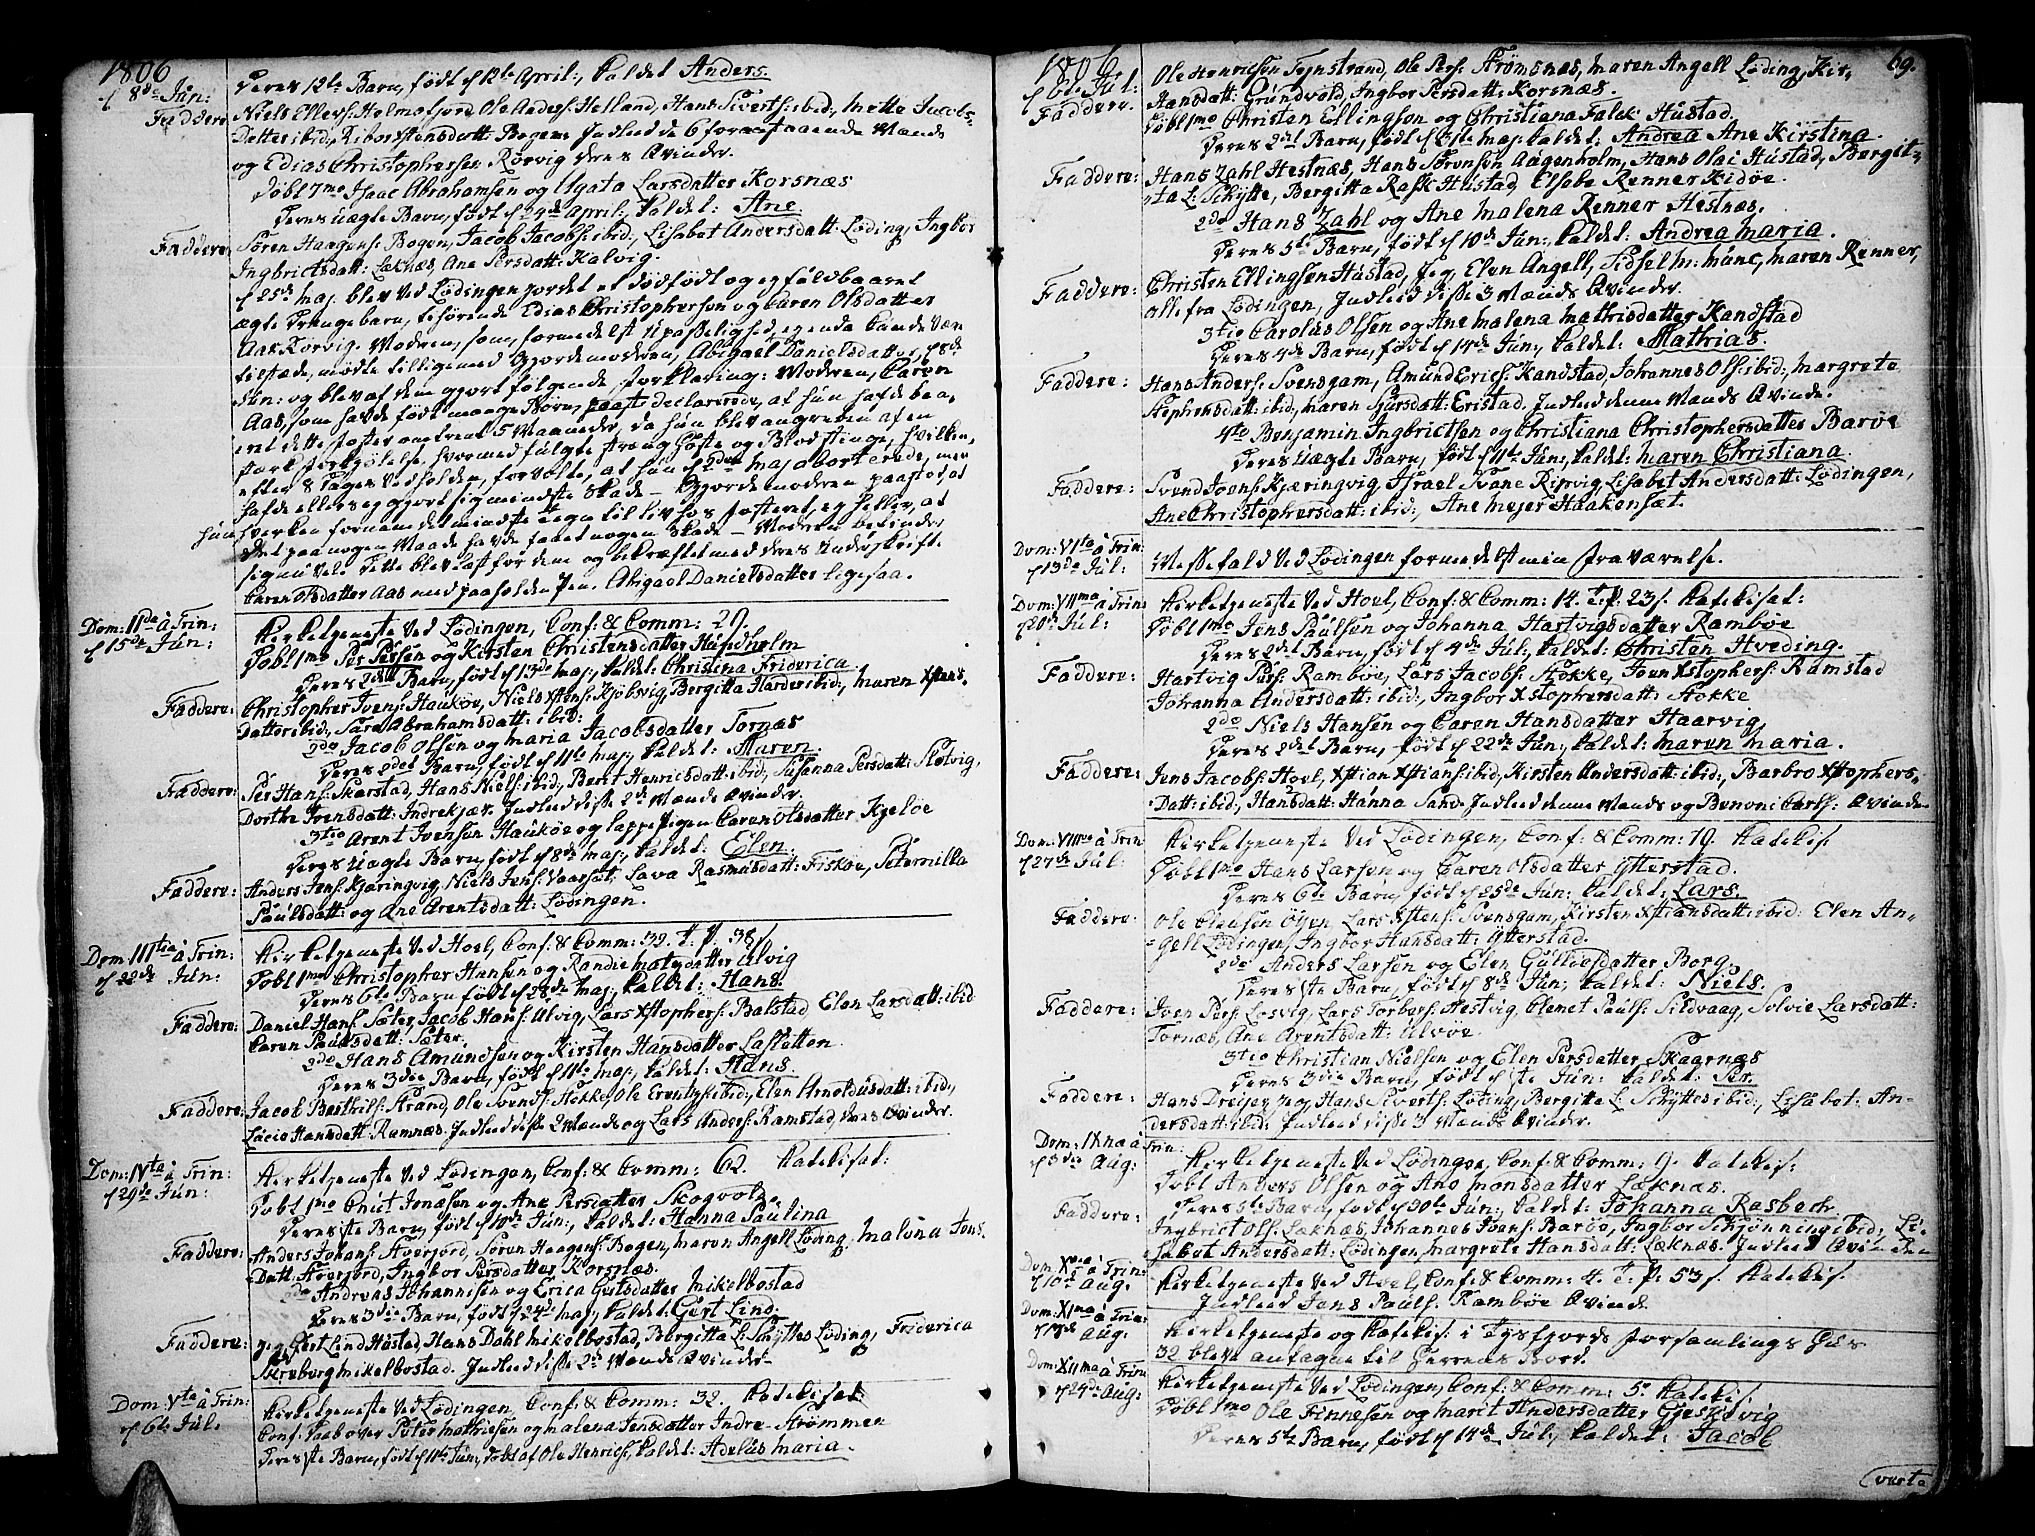 1806
d 8de Jun:
Deres 12te Barn, født d 12te April:, kaldet Anders.
Faddere
Niels Ellevs: Holmefjord, Ole Anders: Helland, Hans Siverts: ibid:, Mette Jacobs-
Datter ibid:, Stensdatt: Bogen. Indleed de 6 foranstaaende Mænds
og Edias Christophersen Rørvig deres Qvinder.
Døbt 7mo Isaac Abrahamsen og Agata Larsdatter Korsnæs
Deres Uægte Barn, født d 24de April:, kaldet: Ane.
Faddere:
Søren Haagens: Bogen, Jacob Jacobs: ibid:, Lisabet Andersdatt: Løding, Ingbor
Ingbrictsdatt: Læknæs, Ane Persdatt: Kalvig.
d 25de Maj. blev ved Lødingen jordet et dødfødt og ej fuldbaaret
ægte Drengebarn, tilhørende Edias Christophersen og Caren Olsdatter
Aas Rørvig. Modren, som, formedelst Upasselighed, ej enda kunde være
tilstæde, mødte tilligemed Gjordemodren, Abigael Danielsdatter, d 8de
Jun: og blev af dem gjort følgende Forklaring: Modren, Caren
Aas, som havde født mange Børn, declarerede, at hun hafde baa-
ret dette Foster omtrent 5 Maaneder, da hun blev angreben af en
stærk Forkjølelse, hvormed fulgte stræng Hoste og Blodstinge, hvilken,
efter 8 Dages Vedholden, forvolte, at hun d 2den Maj aborterede, men
hafde ellers ej gjort sig mindste Skade — Gjordemodren paastod, at
hun hverken fornam det mindste tegn til liv hos Fosteret, ej heller, at
det paa nogen Maade havde faaet nogen Skade — Modren befinder
sig nu vel. Dette blev læst for dem og bekræftet med deres Underskrift.
Caren Olsdatter Aas med paaholden Pen. Abigael Danielsdatter ligesaa.
Dom: IIda à Trin:
d 15de Jun:
Kirketjeneste ved Lødingen, Conf: & Comm: 29.
Døbt 1mo Per Persen og Kirsten Christensdatter Hundholm
Deres 2det Barn, født d 13de Maj:, kaldet: Christina Friderica.
Faddere:
Christopher Ivens: Haukøe, Niels Xstens: Kjøbsvig, Bergitta Harder ibid:, Maren Xstens-
datter ibid:, Sara Abrahamsdatt: ibid:
2do Jacob Olsen og Maria Jacobsdatter Tornæs
Deres 2det Barn, født d 11te Maj:, kaldet: Maren.
Faddere:
Per Hans: Skarstad, Hans Niels: ibid:, Berit Henricsdatt: ibid:, Susanna Persdatt: Slotvig,
Dorthe Ivensdatt: Indrekjær. Indleed disse 2de Mænds Qvinder.
3tio Arent Ivensen Haukøe og lappe Pigen Caren Olsdatter Kjeløe
Deres Uægte Barn, født d 8de Maj:, kaldet: Elen.
Faddere:
Anders Jens: Kjæringvig, Niels Jens: Vaarset, Lava Rasmusdatt: Fiskøe, Peternilla
Paulsdatt: og Ane Arentsdatt: Lødingen.
Dom: IIItia à Trin:
d 22de Jun:
Kirketjeneste ved Hoel, Conf: & Comm: 39. T. P. 38 s.
Døbt 1mo Christopher Hansen og Randie Matsdatter Ulvig
Deres 6te Barn født d 28de Maj:, kaldet: Hans.
Faddere:
Daniel Hans: Sæter, Jacob Hans: Ulvig, Lars Xstophers: Balstad, Elen Larsdatt: ibid
Caren Paulsdatt: Sæter.
2do Hans Amundsen og Kirsten Hansdatter Lastetten
Deres 3die Barn, født d 11te Maj:, kaldet: Hans.
Faddere:
Jacob Berthils: Strand, Ole Svends: Hokke, Ole ibid:, Elen Arnoldusdatt: ibid:,
Lucie Hansdatt: Ramnæs. Indleed disse 2 Mænds og Lars Anders: Ramstad, deres Qvinder.
Dom: IVta à Trin:
d 29de Jun:
Kirketjeneste ved Lødingen, Conf: & Comm: 62. Katekisat:
Døbt 1mo Cnut Jonasen og Ane Persdatter Skogvold
Deres 1ste Barn, født d 10de Jun:, kaldet: Hanna Paulina
Faddere:
Anders Johans: Stverjord, Søren Haagens: Bogen, Maren Angell Løding:, Malena Jens-
Datt: Stverjord, Ingbor Persdatter Korsnæs.
2do Andreas Johannesen og Erica Gertsdatter Mikelbostad
Deres 3die Barn, født d 24de Maj:, kaldet: Gert Lind.
Faddere:
Jeg, Gert Lind Hustad, Hans Dahl Mikelbostad, Bergitta L: Schyttes Løding, Friderica
Mikelbostad. Indleed disse 2de Mænds Qvinder
Dom: Vta à Trin:
d 6te Jul:
Kirketjeneste ved Lødingen, Conf: & Comm: 32. Katekisat
Conf: Daab over Peter Mathiesen og Malena Jensdatter Indre-Strømmen
Deres 1ste Barn, født d 11te Jun:, døbt af Ole Henrics:, kaldet: Adelus Maria.
1806
69.
d 6te Jul:
Faddere.
Ole Henricsen Tynstrand, Ole Pers: Strømsnæs, Maren Angell Løding, Kir.
Hansdatt: Grundvold, Ingbor Persdatt: Korsnæs.
Døbt 1mo Christen Ellingsen og Christiana Falck Hustad.
Deres 2det Barn, født d 31te Maj: kaldet: Andrea Ane Kirstina.
Faddere:
Hans Zahl Hestnæs, Hans Sørensen Aagenholm, Hans Olai Hustad, Bergit-
ta L: Schytte, Bergitta Rask Hustad, Elsebe Renner Kidøe.
2do Hans Zahl og Ane Malena Renner Hestnæs.
Deres 5te Barn, født d 10de Jun:, kaldet: Andrea Maria.
Faddere:
Christen Ellingsen Hustad, Jeg, Elen Angell, Sidsel M: Munc, Maren Renner,
alle fra Lødingen, Indleed disse 3 Mænds Qvinder.
3tio Carolus Olsen og Ane Malena Mathisdatter Kandstad
Deres 4de Barn, født d 14de Jun:, kaldet: Mathias.
Faddere:
Hans Anders: Svensgam, Amund Erics: Kandstad, Johannes Ols: ibid:, Margrete
Stephensdatt: ibid:, Maren Sjursdatt: Eristad. Indleed denne Mands Qvinde.
4to Benjamin Ingbrictsen og Christiana Christophersdatter Barøe
Deres Uægte Barn, født d 11te Jun:, kaldet: Maren Christiana.
Faddere:
Svend Joens: Kjæringvig, Israel Svane Rinvig, Lisabet Andersdatt: Lødingen,
Ane Christophersdatt: ibid:, Ane Mejer Haakensæt.
Dom: VIta à Trin:
d 13de Jul:
Messefald ved Lødingen formedelst min Fraværelse.
Dom: VIIma à Trin:
d 20de Jul:
Kirketjeneste ved Hoel, Conf: & Comm: 14. T. P. 23 s. Katekisat:
Døbt 1mo Jens Paulsen og Johanna Hartvigsdatter Rambøe
Deres 2det Barn, født d 4de Jul:, kaldet: Christen Hveding.
Faddere:
Hartvig Pers: Rambøe, Lars Jacobs: Stokke, Joen Xstophers: Ramstad
Johanna Andersdatt: ibid:, Ingbor Xstophersdatt: Stokke
2do Niels Hansen og Caren Hansdatter Haarvig,
Deres 2det Barn, født d 22de Jun:, kaldet: Maren Maria.
Faddere:
Jens Jacobs: Hoel, Xstian Xstians: ibid, Kirsten Andersdatt: ibid:, Barbro Xstophers-
Datt: ibid:, Hansdatt: Hanna Sand. Indleed denne Mands og Benoni Carls: Qvinder
Dom: VIIIva à Trin
d 27de Jul:
Kirketjeneste ved Lødingen, Conf: & Comm: 19. Katekis:
Døbt 1mo Hans Larsen og Caren Olsdatter Ytterstad.
Deres 6te Barn, født d 25de Jun: kaldet: Lars.
Faddere:
Ole Olausen Øyen, Lars Xstens: Svensgam, Kirsten Xstiansdatt: ibid: Elen An-
gell Lødingen, Ingbor Hansdatt: Ytterstad.
2do Anders Larsen og Elen Gulliesdatter Borg
Deres 1ste Barn, født d 8de Jun: kaldet: Niels.
Faddere:
Iven Pers: Losvig, Lars Torbers: Hestvig, Clemet Pauls: Sildvaag, Solvie Larsdatt:
Tornæs, Ane Arentsdatt: Ulvøe.
3tio Christian Nielsen og Elen Persdatter Skaarnæs
Deres 3die Barn, født d 1ste Jun: kaldet: Per.
Faddere:
Hans Dreijer, Jeg, Hans Siverts: Løding, Bergitta L: Schyttes ibid:, Lisabet: An-
dersdatt: ibid: Indleed disse 3 Mænds Qvinder.
Dom: IXna à Trin:
d 3die Aug:
Kirketjeneste ved Lødingen, Conf: & Comm: 9. Katekis:
Døbt Anders Olsen og Ane Monsdatter Læknæs.
Deres 5te Barn, født d 30te Jun: kaldet: Johanna Rasbech.
Faddere:
Ingbrict Ols: Læknæs, Johannes Ivens: Barøe, Ingbor Schjønning ibid:, Li-
sabet Andersdatt: Lødingen, Margrete Hansdatt: Læknæs. Indleed Qvinden
Dom: Xma à Trin:
d 10de Aug:
Kirketjeneste ved Hoel, Conf: & Comm: 4. T. P. 53 s. Katekis.
Indleed Jens Pauls: Rambøe Qvinde
Dom: XIma à Trin:
d 17de Aug:
Kirketjeneste og Katekis: i Tysfjords Forsamlings Huus
32 bleve antagne til Herrens Bord.
Dom: XIIma à Trin:
d 24de Aug:
Kirketjeneste ved Lødingen, Conf: & Comm: 5. Katekis.
Døbt 1mo Ole Finnesen og Marit Andersdatter Gjeskevig
Deres 5te Barn, født d 14de Jul:, kaldet: Jacob
vert.